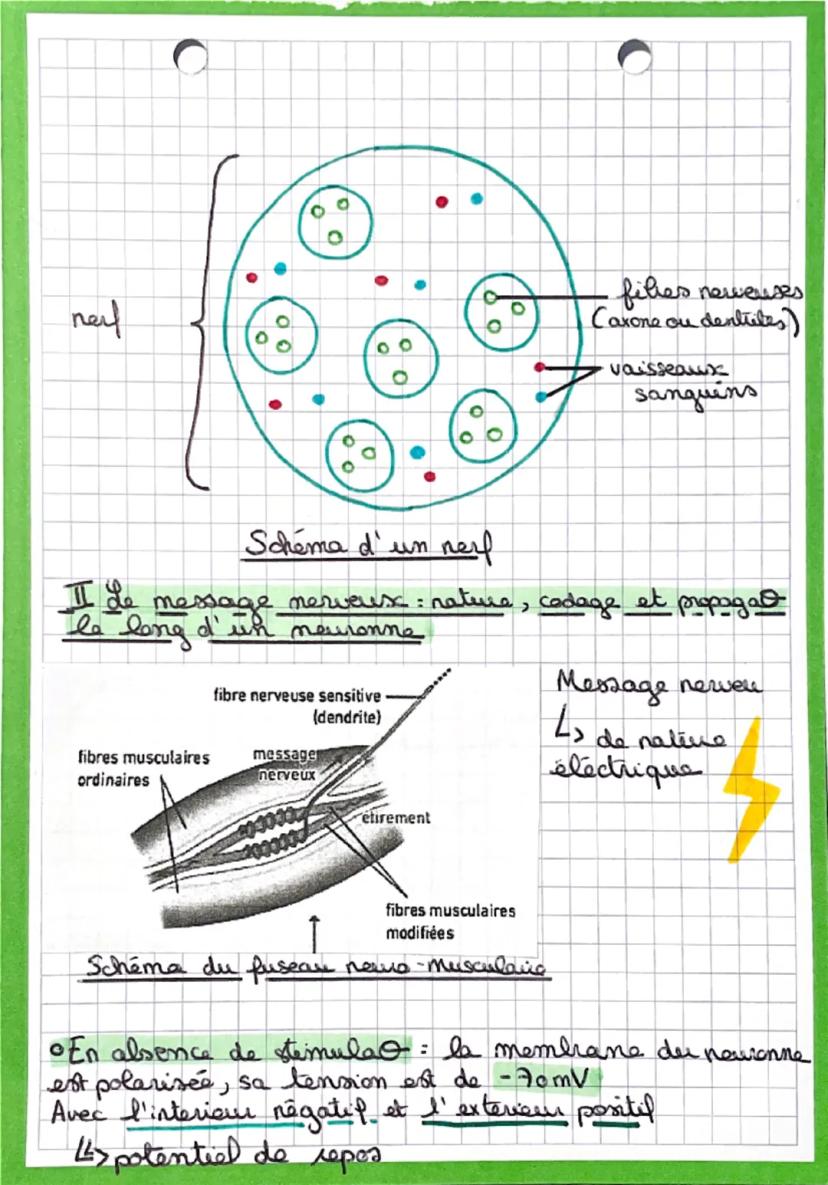 nerf
fibres nerveuses
(axone ou dentrites)
vaisseaux
sanguins
Schéma d'un nerf
II Le message nerveux : nature, codage et propagaθ
le long d'un neuronne
fibre nerveuse sensitive
(dendrite)
fibres musculaires
ordinaires
message
nerveux
étirement
fibres musculaires
modifiées
Message nerveu
↳ de nature
éléctrique
Schéma du fuseau neuro-musculaire
•En absence de stimulaθ : la membrane du neuronne
est polarisée, sa tension est de -70mV
Avec l'interieur négatif et l'exterieur positif
↳> potentiel de repos